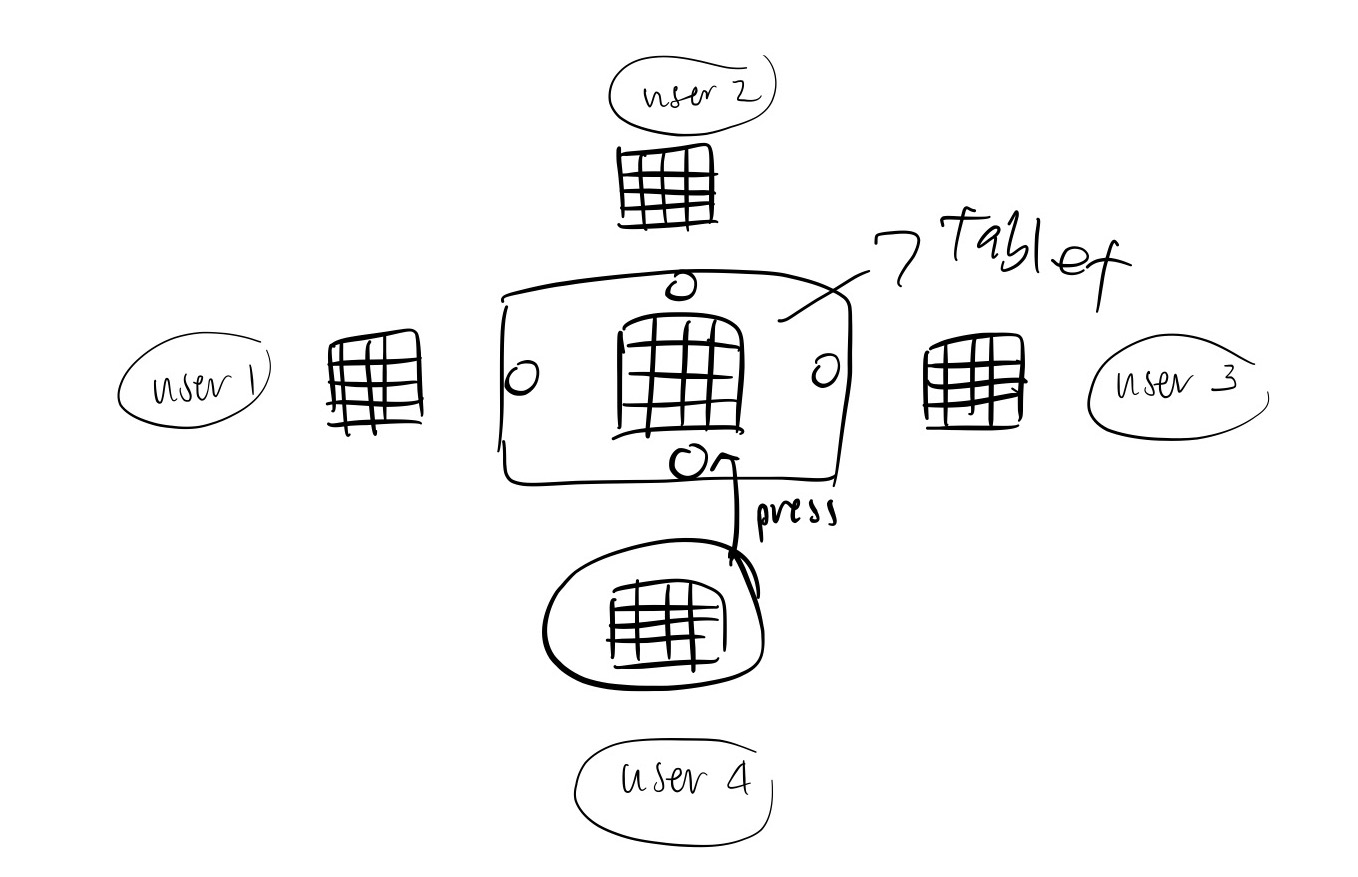 user 2
Tablet
user 1
user 3
press
user 4